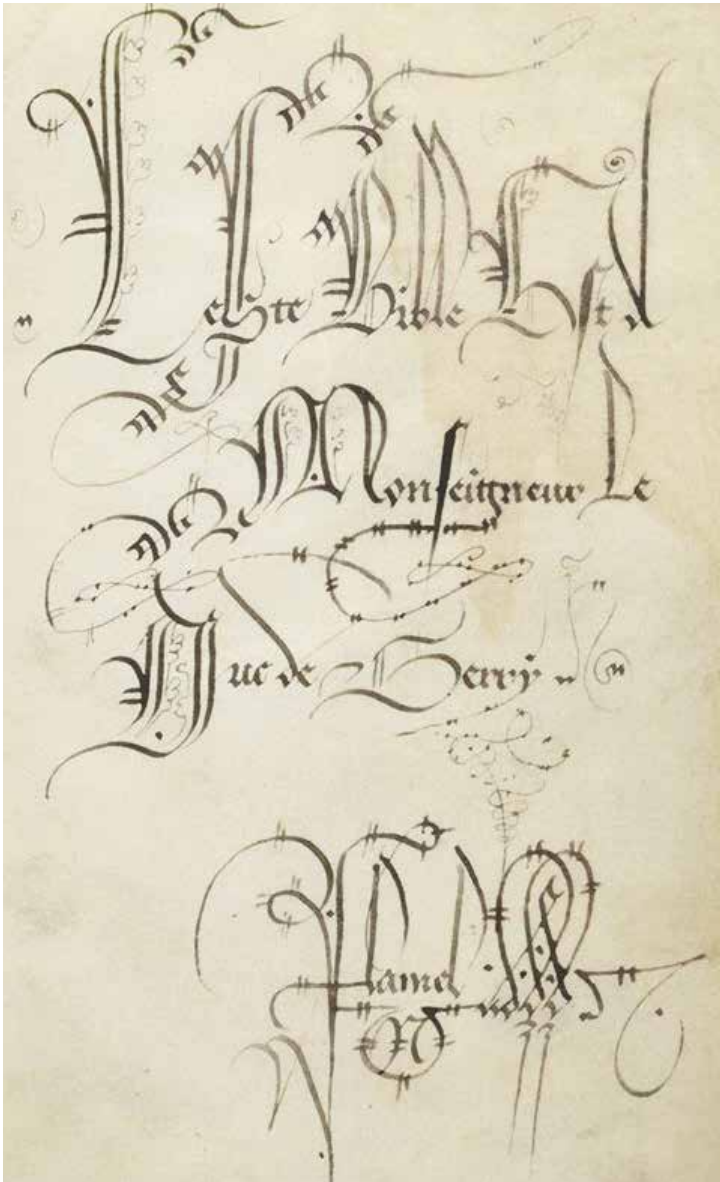 Ceste Bible Est a
Monseigneur Le
Duc de Berry
Flamel